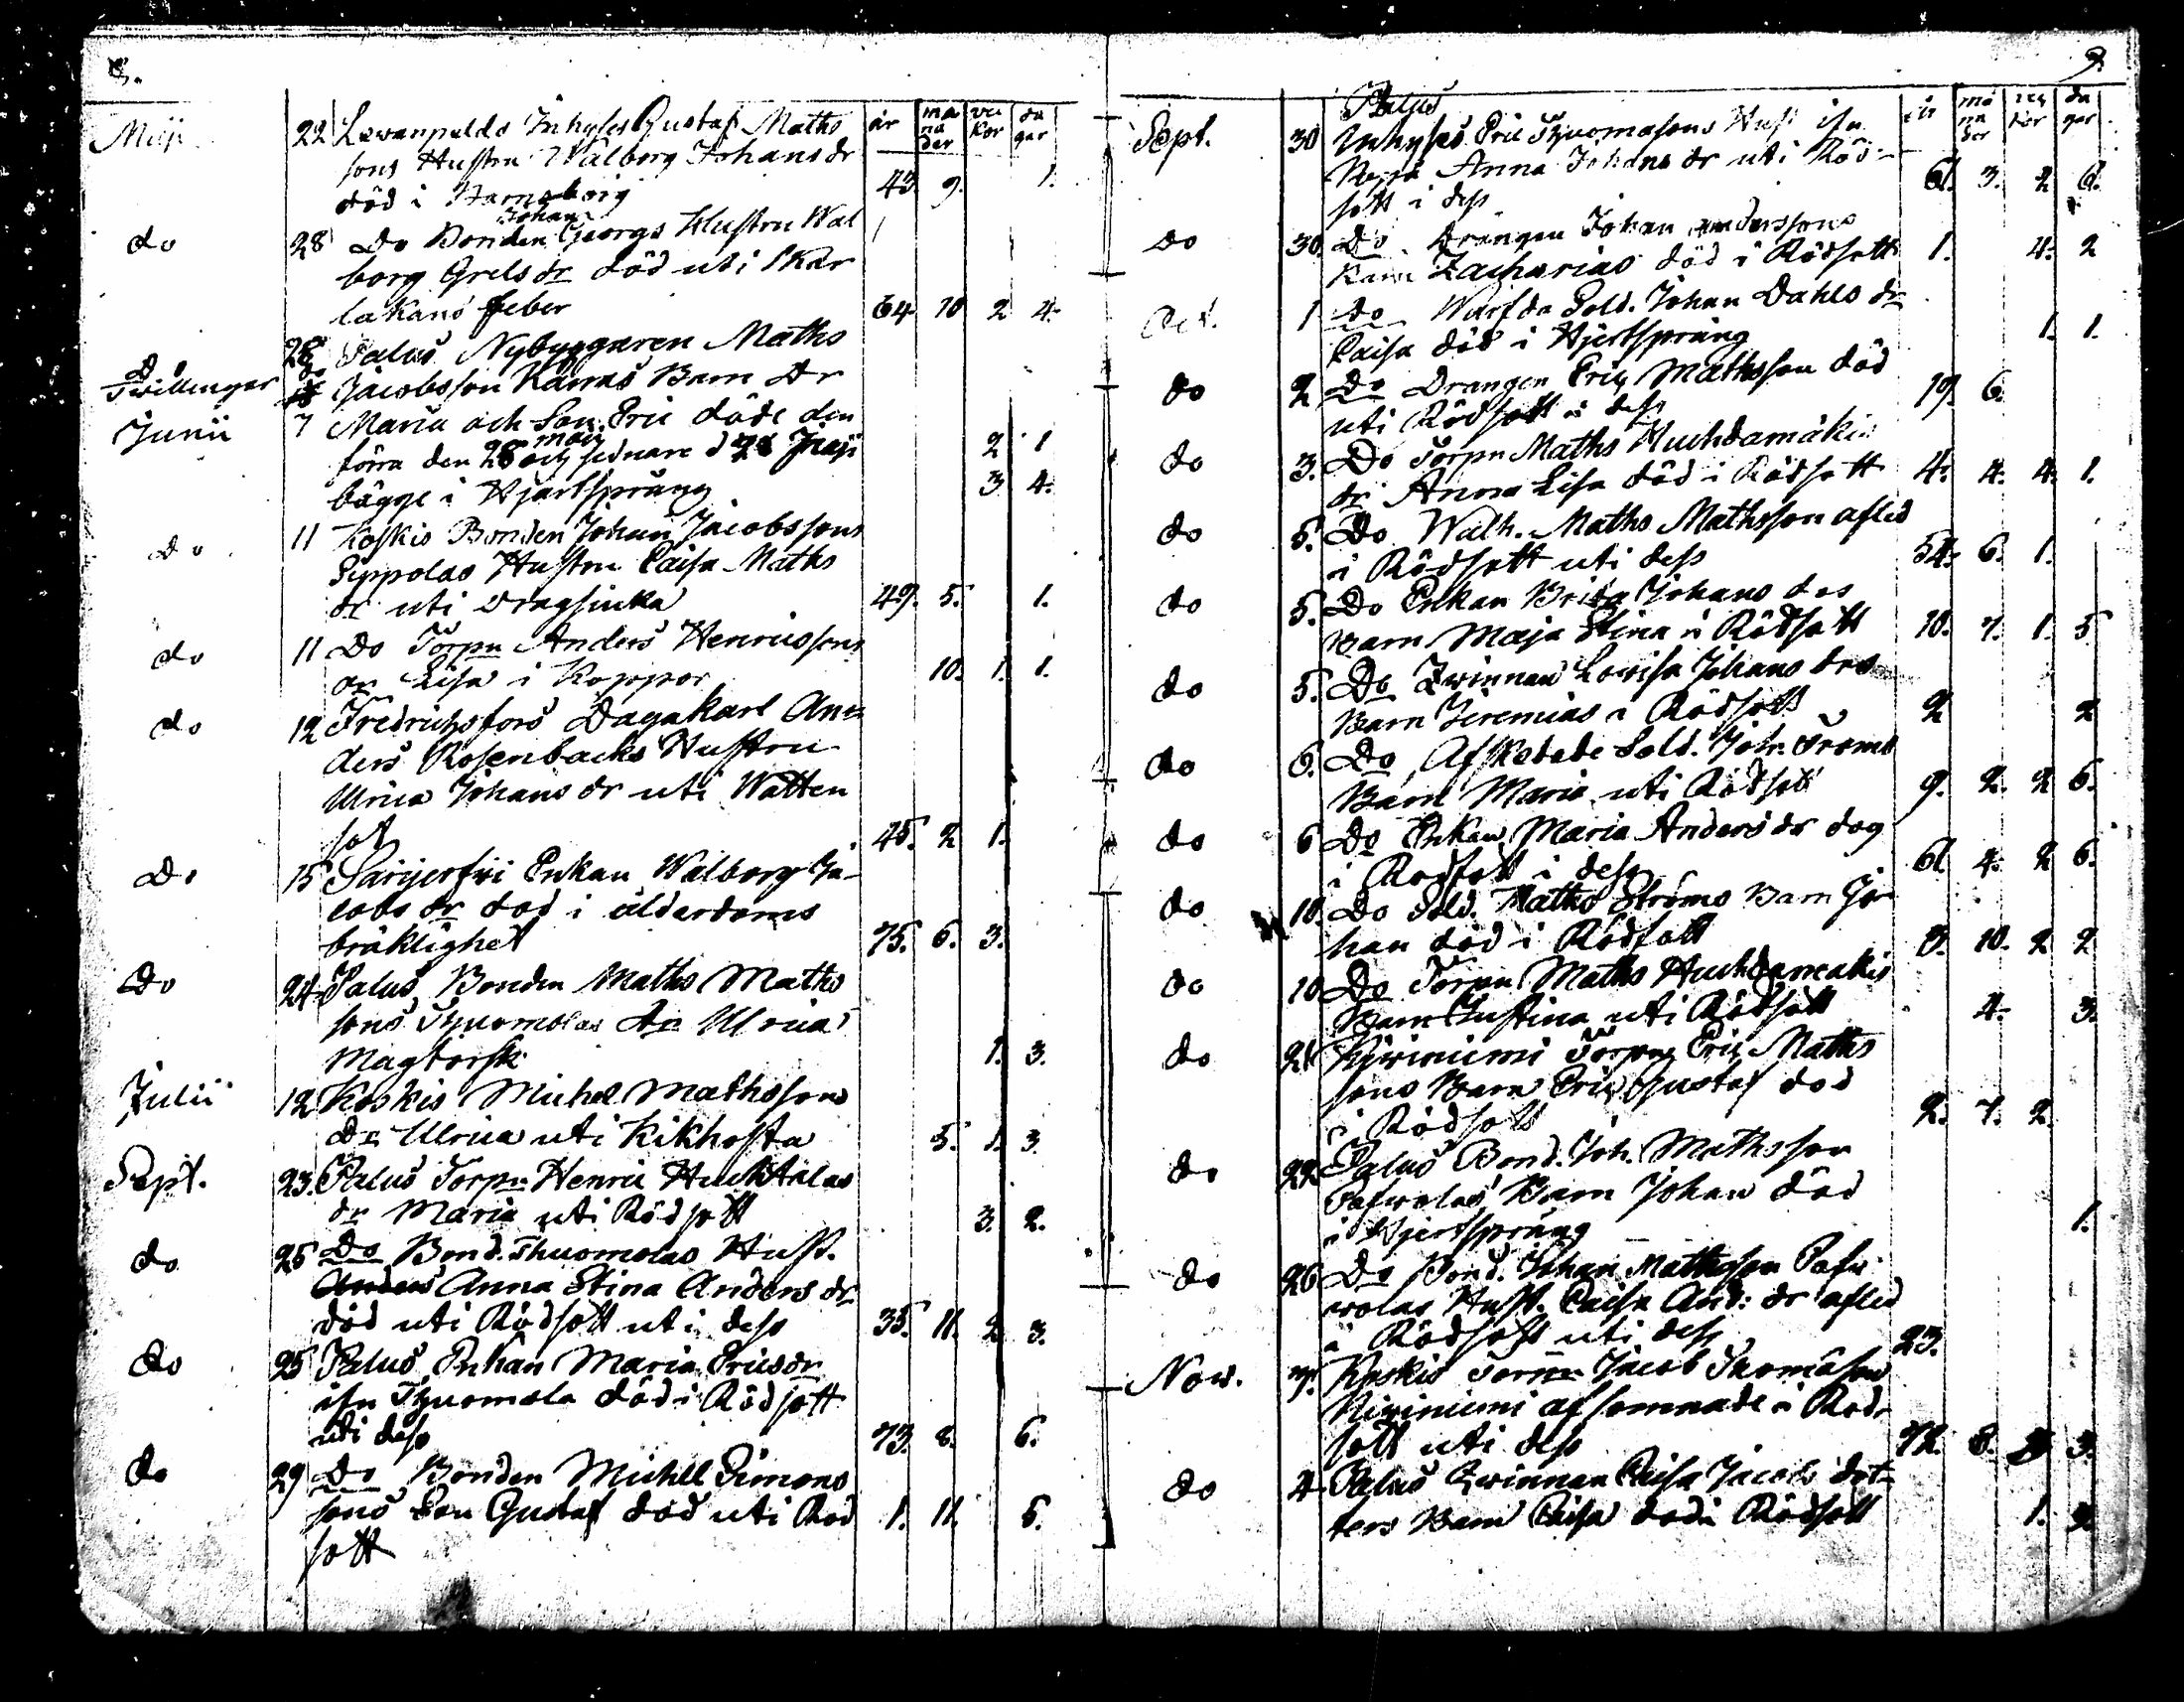 8.
år må na der vec kor da gar
Maji 22 Lewanpeldo Inhyses Gustaf Maths
sons Hustru Walborg Johans dr
död i Barnsbörg 43. 9. 1.
Johan
do 28 Do Bonden Georgs Hustru Wal
borg Grels dr död uti Skar
lakans feber 64 10 2 4.
28 Palus Nybyggaren Maths
Do
Twillingar Jacobsson Karras Barn Dr
Junii 7 Maria och Son Eric döde den
maji
förra den 28 och sednare d
bägge i Hjertsprång 2 1
3 4.
Do 11 Koskis Bonden Johan Jacobssons
Sippolas Hustru Caisa Maths
dr uti dragsiuka 49. 5. 1.
do 11 Do Torpn Anders Henricssons
dr Lisa i Koppor 10. 1. 1.
do 12 Fredrichsfors Dagakarl An=
ders Rosenbacks Hustru
Ulrica Johans dr uti Watten
sot 45. 2 1.
Do 15 Särijerfwi Enkan Walborg Ja-
cobs dr död i ålderdoms
bräklighet 75. 6. 3.
Do 24 Palus Bonden Maths Maths
sons Thuomolas dr Ulrica
Magtorsk 1. 3.
Julii 12 Koskis Michel Mathssons
Dr Ulrica uti Kikhosta 5. 1. 3
Sept. 23. Palus Torpn Henric Huchtalas
dr Maria uti Rödsott 3. 2.
do 25 Do Bond. Thuomolas Hust.
Anders Anna Stina Anders dr
död uti Rödsott uti dess 35. 11. 2 3.
do 25 Palus Enkan Maria Erics dr
ifrn Thuomola död i Rödsott
uti dess 73. 8. 6.
do 29 Do Bonden Michel Simons
sons Son Gustaf död uti Röd 1. 11. 6.
sott
9.
år må na der vec kor da gar
Palus
Sept. 30 Inhyses Eric Thuomasons Hust ifrn
Anna Johans dr uti Röd-
sott i dess 61. 3. 2 6.
do 30. Do Drängen Johan Anderssons
barn Zacharias död i Rödsott 1. 4. 2
Oct. 1 do Warfda Sold. Johan Dahls dr
Caisa död i Hjertsprång 1. 1.
do 2 Do Drängen Eric Mathsson död
uti Rödsott i dess 19. 6.
do 3. Do Torpn Maths Huchdamäkis
dr Anna Lisa död i Rödsott 4. 4. 4. 1.
do 5. Do Walh. Maths Mathsson afled
i Rödsott uti dess 54. 6. 1.
do 5. Do Enkan Brita Johans drs
Barn Maja Stina i Rödsott 10. 7. 1. 5
do 5. Do Qwinnan Lowisa Johans drs
Barn Jeremias i Rödsott 2 2
do 6. Do Afskedade Sold. Joh. Froms
Barn Maria uti Rödsott 9. 2. 2 6.
do 6 Do Enkan Maria Anders dr dog
i Rödsott i dess 61. 4. 2 6.
do 10. Do Sold. Maths Ströms Barn Jo-
han död i Rödsott 8. 10. 2 2
do 10 Do Torpn Maths Huchdamäkis
Barn Justina uti Rödsott 4. 3.
do 21 Niwiniemi Torpn Eric Maths
sons Barn Eric Gustaf död
i Rödsott 2. 7. 2.
do 22 Palus Bond. Joh. Mathsson
Pafwolas Barn Johan död
i Hjertsprång 1.
do 26 Do Bond. Johan Mathsson Pafw
wolas Hust. Caisa And: dr afled
i Rödsott uti dess 23.
Now. 3. Koskis Torpn Jacob Thomasson
Niwiniemi afsomnade i Röd-
sott uti dess 72. 8. 3.
do 4 Palus Qwinnan Caisa Jacobs dot-
ters Barn Caisa död i Rödsott 1. 2